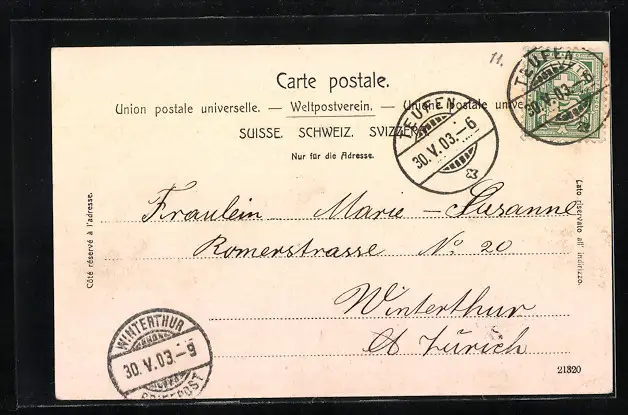 11.
Carte postale.
Union postale universelle. — Weltpostverein. — Unione postale unive
SUISSE. SCHWEIZ. SVIZZER
Nur für die Adresse.
TEUFEN
30.V.03.–6
TEUFEN
30.V.03.
Côté réservé à l'adresse.
Lato riservato all' indirizzo.
Fräulein Marie – Susanne
Romerstrasse No 20
Winterthur
Ct Zürich
WINTERTHUR
30.V.03.–9
BRIEFPOST
21320